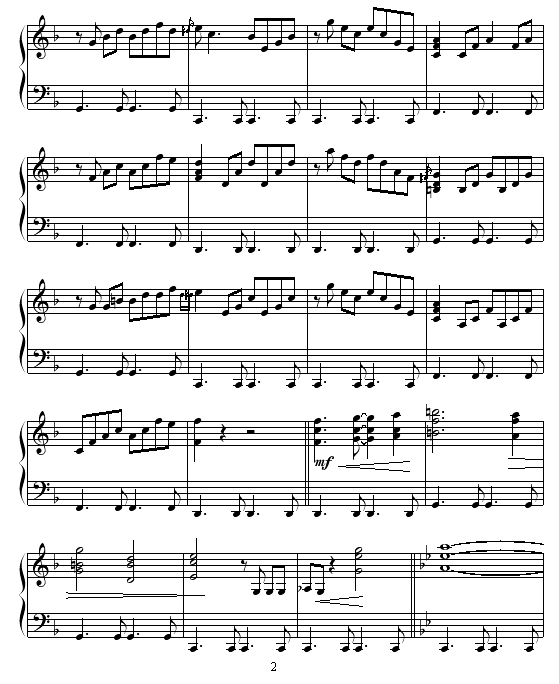 mf
2